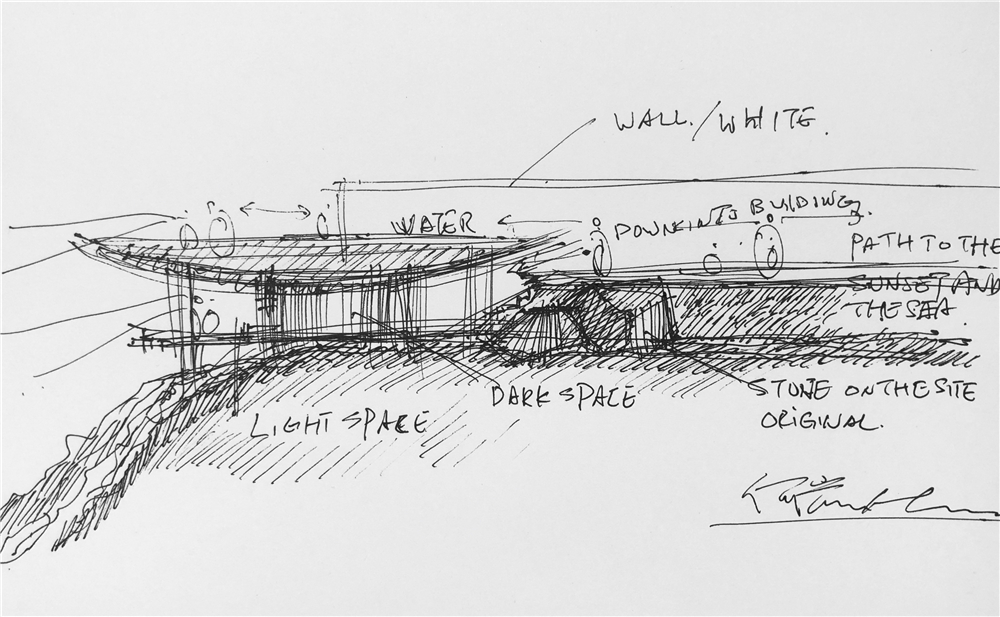 WALL./WHITE.
WATER
DOWN INTO BUILDING.
PATH TO THE
SUNSET AND
THE SEA.
DARK SPACE
LIGHT SPACE
STONE ON THE SITE
ORIGINAL.